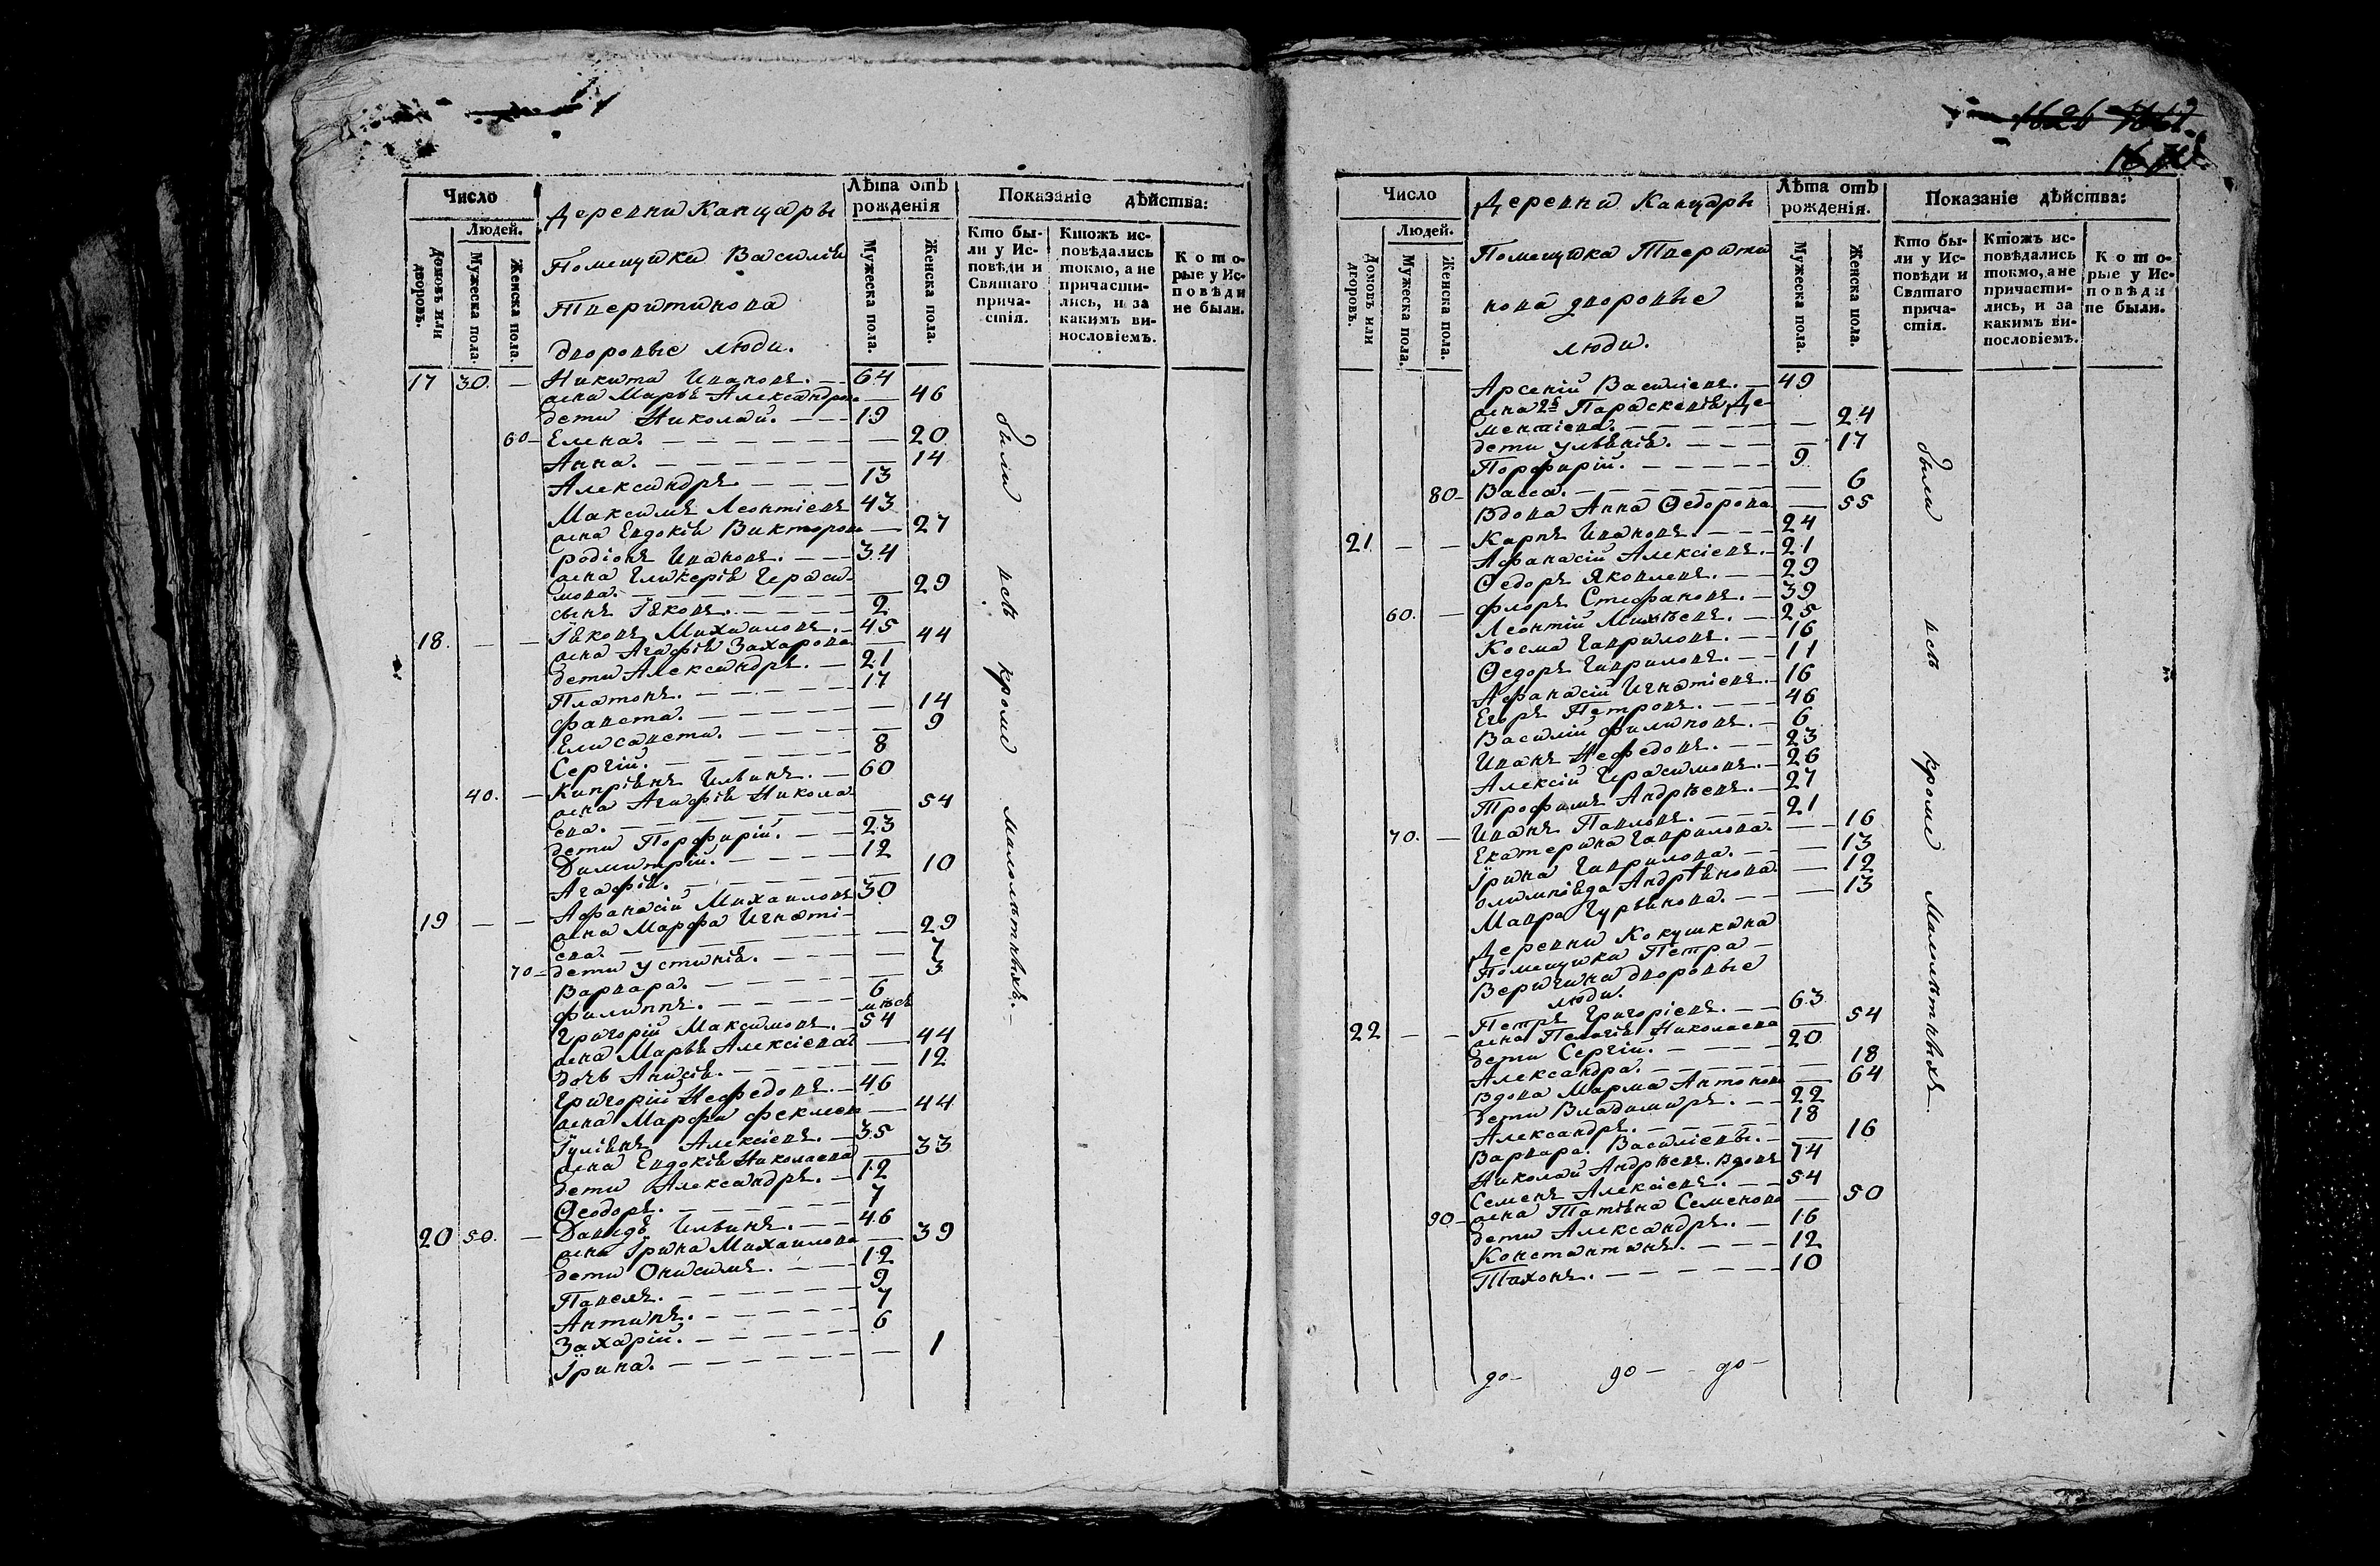 Число
Людей.
Домовъ или дворовъ.
Мужеска пола.
Женска пола.
Деревни Канцары
Помещика Василія
Тверитинова
дворовые люди.
Лѣта отъ рожденія
Мужеска пола.
Женска пола.
Показаніе дѣйства:
Кто бы-
ли у Ис-
повѣди и
Святаго
прича-
стія.
Ктожъ ис-
повѣдались
токмо, а не
причасти-
лись, и за
какимъ ви-
нословіемъ.
Кото-
рые у Ис-
повѣди
не были.
17 30. — Никита Ивановъ. — 64
жена Марья Александрова — 46
дети Николай. — 19
60 — Елена. — 20
Анна. — 14
Александръ. — 13
Максимъ Леонтіевъ 43
жена Евдокія Викторова — 27
Родіонъ Ивановъ. — 34
жена Гликерія Гераси-
мова. — 29
сынъ Іяковъ. — 2
18. — — Іяковъ Михаиловъ. — 45
жена Агафія Захарова — 44
дети Александръ. — 21
Платонъ. — 17
Фавста. — 14
Елисавета. — 9
Сергій. — 8
40. — Кипріянъ Ильинъ. — 60
жена Агафія Никола
ева. — 54
дети Порфирій. — 23
Димитрій. — 12
Агафія. — 10
19 — — Афанасій Михаиловъ 30
жена Марфа Игнаті-
ева. — 29
70 — дети Устинія. — 7
Варвара. — 3
Филиппъ. — 6 мѣся
Григорій Максимовъ. — 54
жена Марья Алексіева — 44
дочь Анисія. — 12
Григорій Нефедовъ. — 46
жена Марфа — 44
Іуліянъ Алексіевъ. — 35
жена Евдокія Николаева — 33
дети Александръ. — 12
Ѳеодоръ. — 7
20 50. — Давидъ Ильинъ. — 46
жена Ірина Михаилова — 39
дети Онисимъ. — 12
Павелъ. — 9
Антипъ. — 7
Захарій. — 6
Ірина. — 1
были всѣ кроме малолѣтныхъ. —
1626
Число
Людей.
Домовъ или дворовъ.
Мужеска пола.
Женска пола.
Деревни Канцары
Помещика Тверити
нова дворовые
люди.
Лѣта отъ рожденія.
Мужеска пола.
Женска пола.
Показаніе дѣйства:
Кто бы-
ли у Ис-
повѣди и
Святаго
прича-
стія.
Ктожъ ис-
повѣдались
токмо, а не
причасти-
лись, и за
какимъ ви-
нословіемъ.
Кото-
рые у Ис-
повѣди
не были.
Арсеній Василіевъ. — 49
жена 2я Параскевія Де-
ментіева. — 24
дети Ульянія. — 17
Порфирій. — 9
80 — Васса. — 6
Вдова Анна Ѳедорова — 55
21 — — Карпъ Ивановъ. — 24
Афанасій Алексіевъ. — 21
Ѳедоръ Яковлевъ. — 29
Флоръ Стефановъ. — 39
60. — Леонтій Михѣевъ. — 25
Косма Гавриловъ. — 16
Ѳедоръ Гавриловъ. — 11
Афанасій Игнатіевъ. — 16
Егоръ Петровъ. — 46
Василій Филиповъ. — 6
Иванъ Нефедовъ. — 23
Алексій Герасимовъ. — 26
Трофимъ Андрѣевъ. — 27
70. — Иванъ Павловъ. — 21
Екатерина Гаврилова. — 16
Ірина Гаврилова. — 13
Олимпіяда Андріянова — 12
Мавра Гурьянова. — 13
Деревни Кокушкина
Помещика Петра
Веригина дворовые
люди.
22 — — Петръ Григоріевъ. — 63
жена Пелагія Николаева — 54
дети Сергій. — 20
Александра. — 18
Вдова Марма Антонова — 64
дети Владимиръ. — 22
Александръ. — 18
Варвара. Василіевы. — 16
Николай Андрѣевъ. вдовъ 74
Семенъ Алексіевъ. — 54
90 — жена Татіяна Семенова — 50
дети Александръ. — 16
Константинъ. — 12
Тихонъ. — 10
были всѣ кроме малолѣтныхъ.
до — до — до —